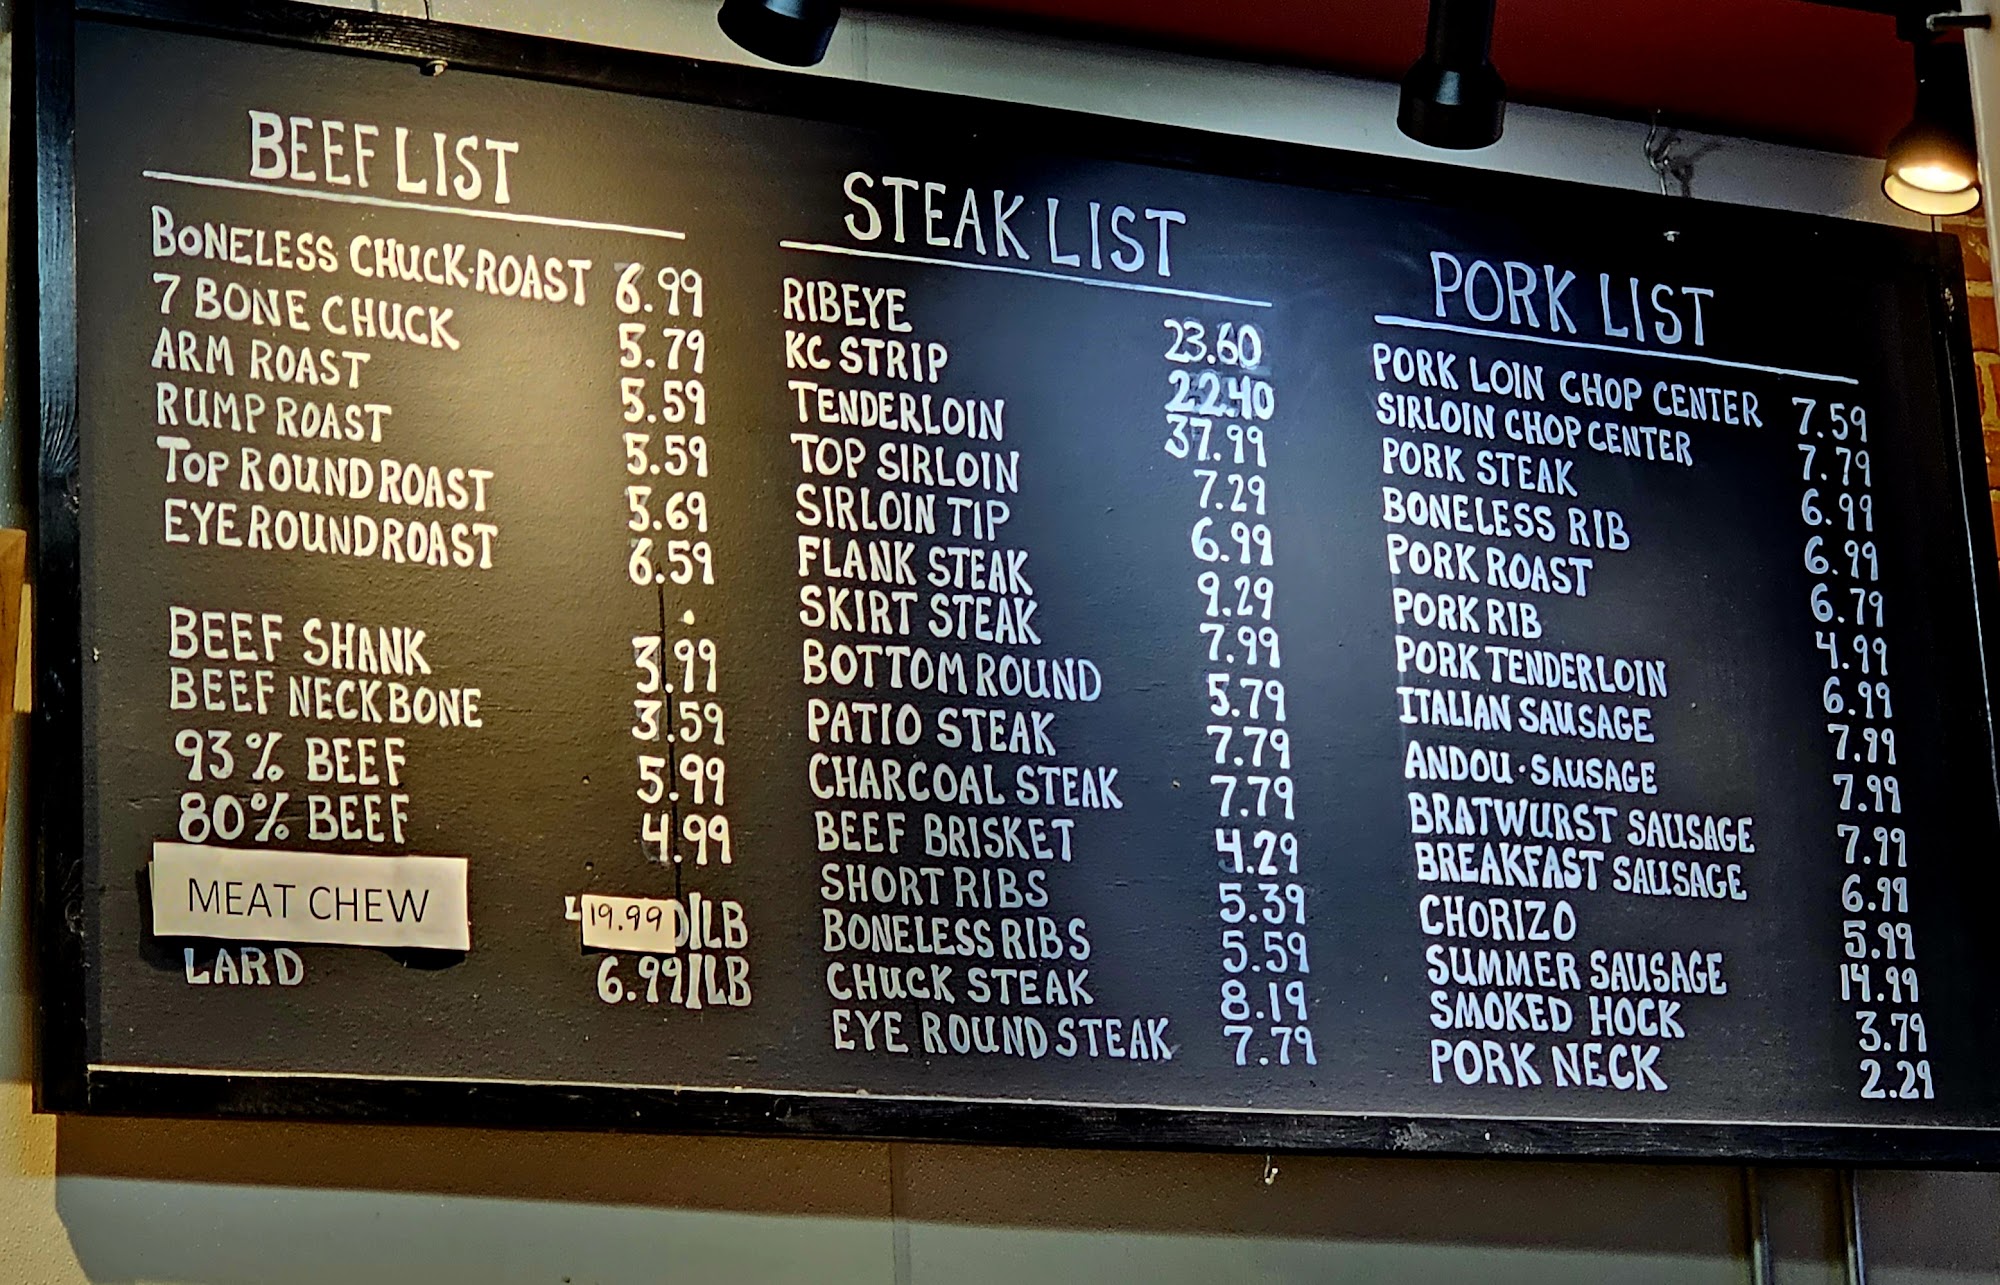 BEEF LIST
BONELESS CHUCK·ROAST 6.99
7 BONE CHUCK 5.79
ARM ROAST 5.59
RUMP ROAST 5.59
TOP ROUND ROAST 5.69
EYE ROUND ROAST 6.59
BEEF SHANK 3.99
BEEF NECK BONE 3.59
93% BEEF 5.99
80% BEEF 4.99
MEAT CHEW 19.99 /LB
LARD 6.99/LB
STEAK LIST
RIBEYE 23.60
KC STRIP 22.40
TENDERLOIN 37.99
TOP SIRLOIN 7.29
SIRLOIN TIP 6.99
FLANK STEAK 9.29
SKIRT STEAK 7.99
BOTTOM ROUND 5.79
PATIO STEAK 7.79
CHARCOAL STEAK 7.79
BEEF BRISKET 4.29
SHORT RIBS 5.39
BONELESS RIBS 5.59
CHUCK STEAK 8.19
EYE ROUND STEAK 7.79
PORK LIST
PORK LOIN CHOP CENTER 7.59
SIRLOIN CHOP CENTER 7.79
PORK STEAK 6.99
BONELESS RIB 6.99
PORK ROAST 6.79
PORK RIB 4.99
PORK TENDERLOIN 6.99
ITALIAN SAUSAGE 7.99
ANDOU·SAUSAGE 7.99
BRATWURST SAUSAGE 7.99
BREAKFAST SAUSAGE 6.99
CHORIZO 5.99
SUMMER SAUSAGE 14.99
SMOKED HOCK 3.79
PORK NECK 2.29